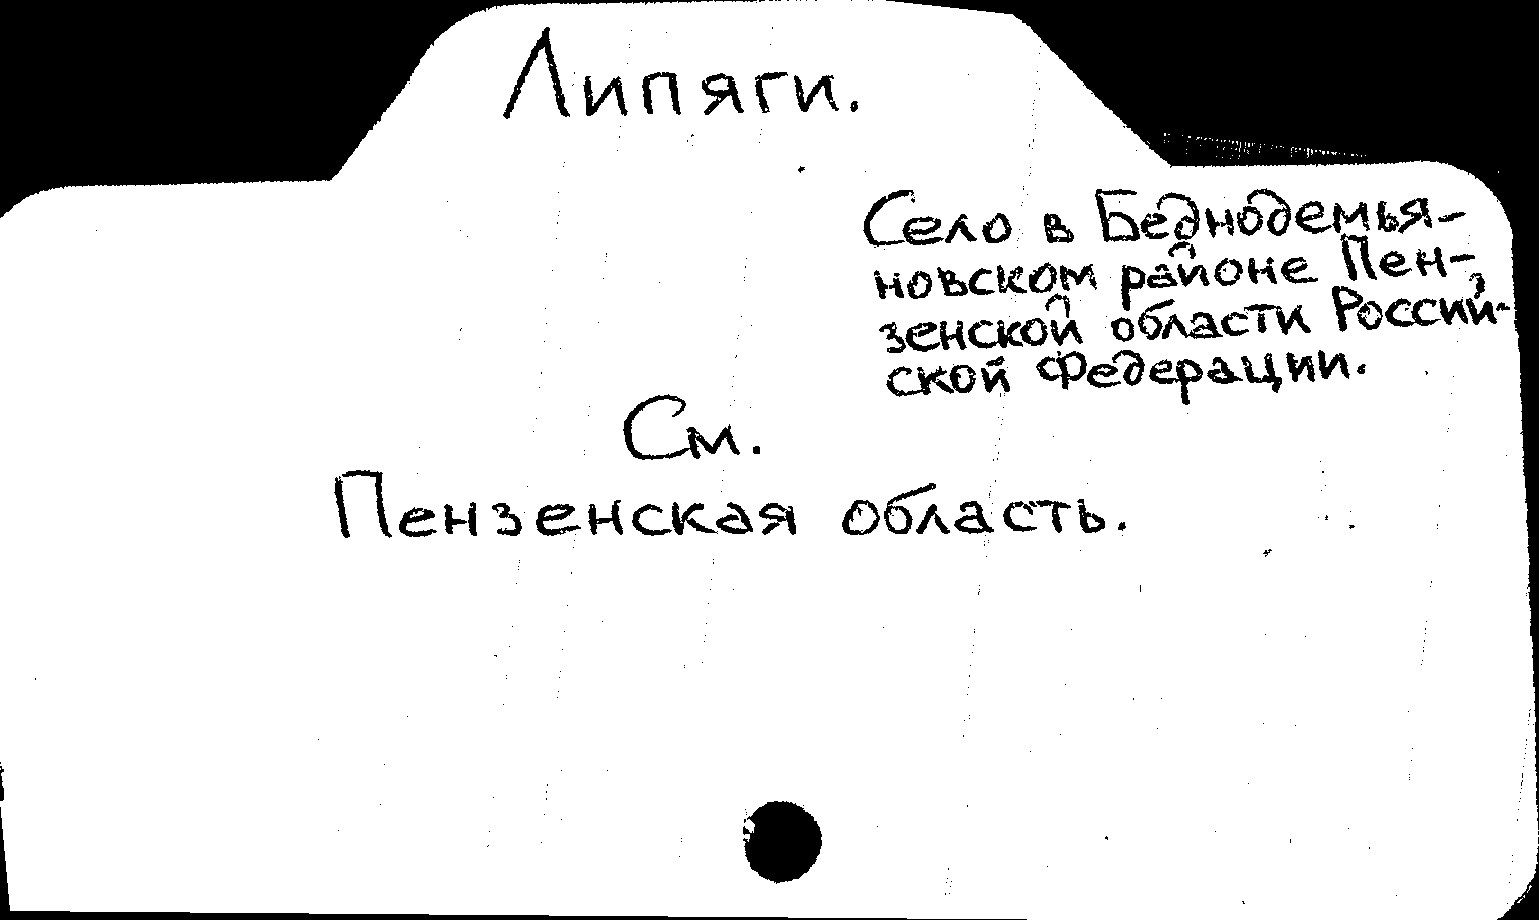 Липяги.
Село в Беднодемья-
новском районе Пен-
зенской области Россий-
ской Федерации.
См.
Пензенская область.